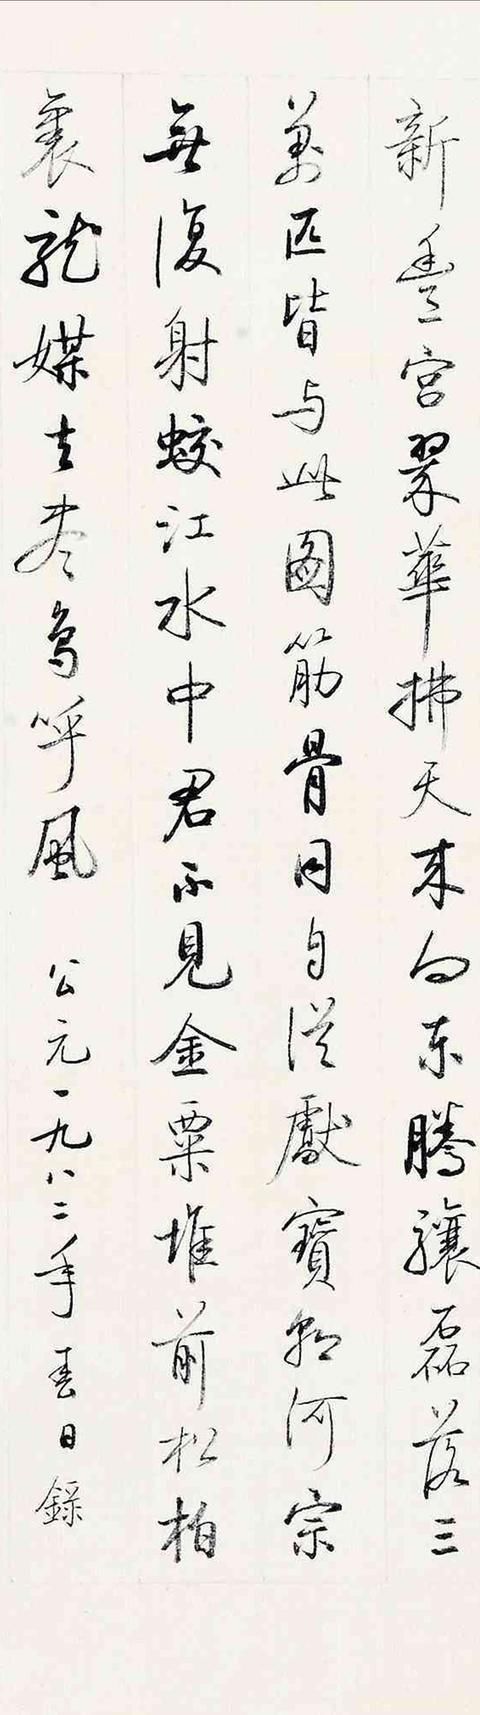 新豐宮翠華拂天來向東騰驤磊落三
萬匹皆与此圖筋骨同自從獻寶朝河宗
無復射蛟江水中君不見金粟堆前松柏
裏龍媒去盡鳥呼風 公元一九八二年春日錄